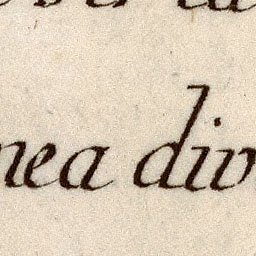 nea div